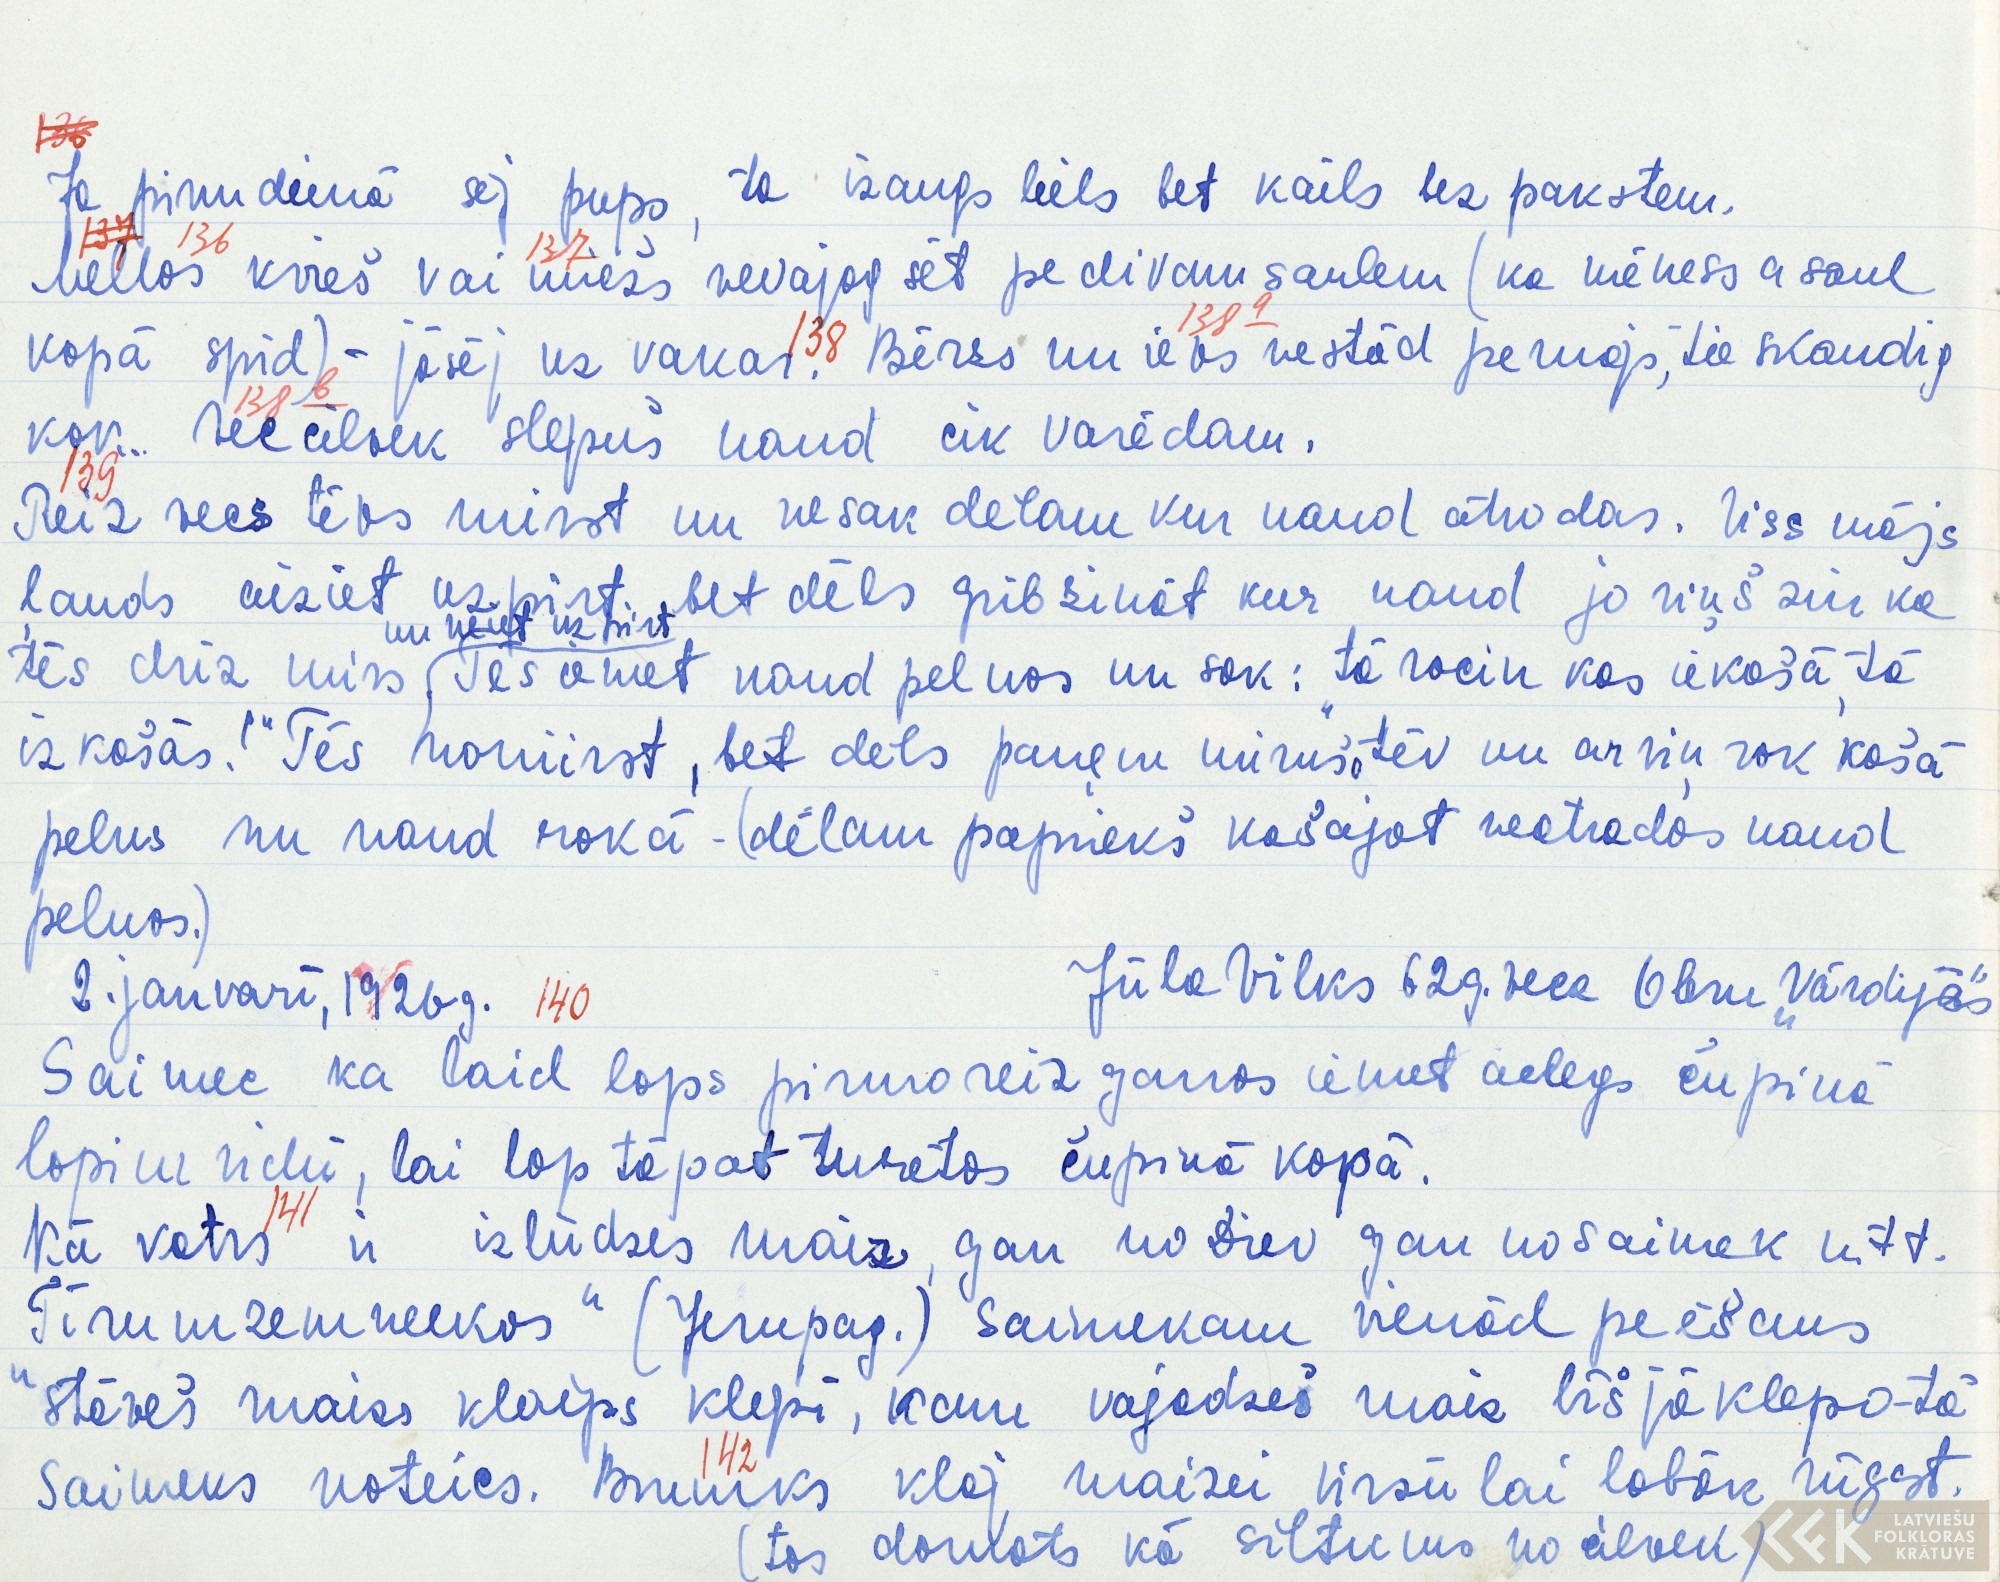 136
Ja pirmdienā sēj pups, ta izaugs liels bet kails bez pakstem.
137 136 137
Mellos kvieš vai miežs nevajag sēt pe divam saulem (ka mēness a saul
138 138 a
kopā spīd) - jāsēj uz vakar. Bērzs un ievs nestād pe mājs, tie skaudīg
138 b
kok.. Vec cilvek slepuš naud cik varēdam.
139
Reiz vecs tēvs mirst un nesak dēlam kur naud atrodas. Viss mājs
ļauds aiziet uz pirt. bet dēls grib zināt kur naud jo viņš zin ka
un neiet uz pirt
tēs drīz mirs. Tēs iemet naud pelnos un sak: "tā rociņ kas iekašā, tā
izkašās!" Tēs nomirst, bet dēls paņem miruš tēv un ar viņ rok kašā
pelns un naud rokā - (dēlam papriekš kašājot neatradās naud
pelnos.)
2. janvarī, 1926g. 140 Jūla Vilks 62g. veca Obru "Vārdijās"
Saimec ka laid lops pirmoreiz ganos iemet adegs čupiņā
lopim vidū, lai lop tāpat turētos čupiņā kopā.
141
Kā katrs ir izlūdzes maiz, gan no Diev gan no saimek u.t.t.
"Tīrumzemneekos" (Jerupag.) Saimekam vienād pe ēšans
"stāveš maizs klaips klēpī, kam vajadzeš maiz līš jā klēpa - tā
142
saimeks noteics. Brunčks klāj maizei virsū lai labāk rūgst.
(tas domāts kā siltums no cilvek)
LATVIEŠU
FOLKLORAS
KRĀTUVE